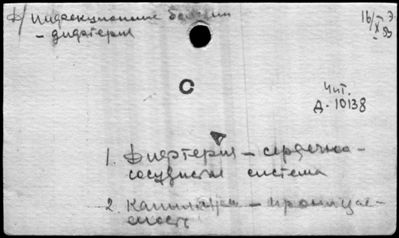 ф/ Инфекционные болезни
- дифтерия
16/X 53
С
Чит.
Д-10138
1. Дифтерия - сердечно-
сосудистая система
2. Капилляры - проницае-
мость